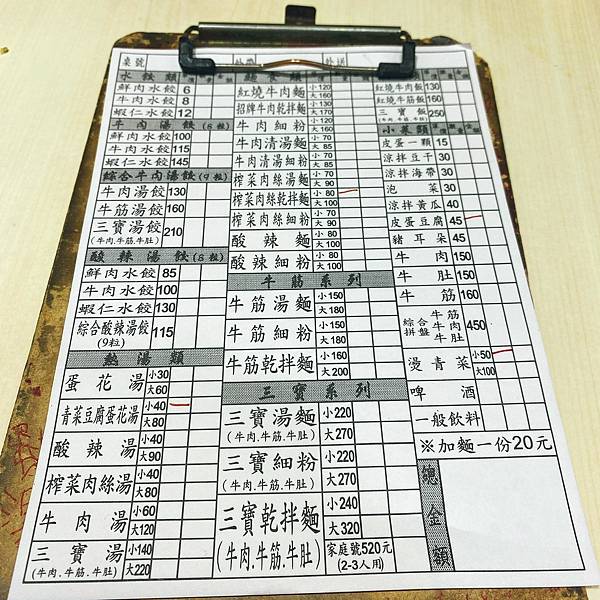 桌號 外帶 外送
水餃類
鮮肉水餃 6
牛肉水餃 8
蝦仁水餃 12
牛肉湯餃 (8粒)
鮮肉水餃 100
牛肉水餃 115
蝦仁水餃 145
綜合牛肉湯餃 (9粒)
牛肉湯餃 130
牛筋湯餃 160
三寶湯餃 210
(牛肉.牛筋.牛肚)
酸辣湯餃 (8粒)
鮮肉水餃 85
牛肉水餃 100
蝦仁水餃 130
綜合酸辣湯餃 115
(9粒)
熱湯類
蛋花湯 小30 大60
青菜豆腐蛋花湯 小40 大80
酸辣湯 小40 大90
榨菜肉絲湯 小40 大80
牛肉湯 小60 大120
三寶湯 小140 大220
(牛肉.牛筋.牛肚)
紅燒牛肉麵 小120 大160
招牌牛肉乾拌麵 小130 大170
牛肉細粉 小120 大160
牛肉清湯麵 小70 大85
牛肉清湯細粉 小70 大85
榨菜肉絲湯麵 小70 大90
榨菜肉絲乾拌麵 小80 大100
榨菜肉絲細粉 小70 大90
酸辣麵 小80 大100
酸辣細粉 小80 大100
牛筋系列
牛筋湯麵 小150 大180
牛筋細粉 小150 大180
牛筋乾拌麵 小160 大200
三寶系列
三寶湯麵 小220 大270
(牛肉.牛筋.牛肚)
三寶細粉 小220 大270
(牛肉.牛筋.牛肚)
三寶乾拌麵 小240 大320
(牛肉.牛筋.牛肚) 家庭號520元
(2-3人用)
紅燒牛肉飯 130
紅燒牛筋飯 160
三寶飯 250
(牛肉.牛筋.牛肚)
小菜類
皮蛋一顆 15
涼拌豆干 30
涼拌海帶 30
泡菜 30
涼拌黃瓜 40
皮蛋豆腐 45
豬耳朵 45
牛肉 150
牛肚 150
牛筋 160
綜合拼盤 牛筋 牛肉 牛肚 450
燙青菜 小50 大100
啤酒
一般飲料
※加麵一份20元
總金額